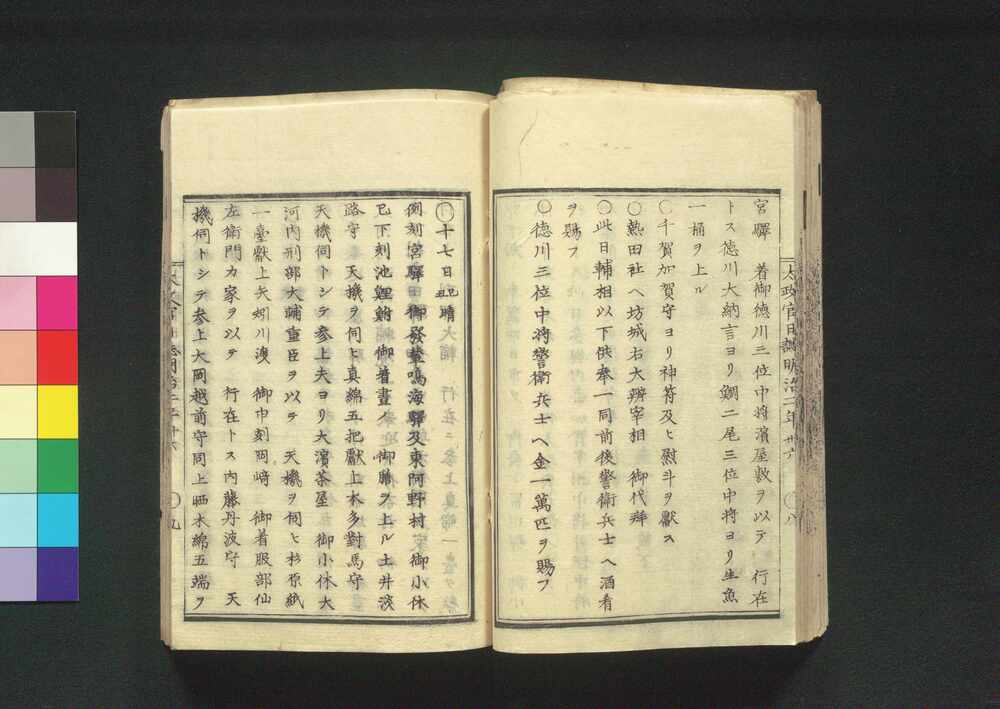 宮驛　着御德川三位中将濱屋敷ヲ以テ　行在
トス德川大納言ヨリ鯛二尾三位中将ヨリ生魚
一桶ヲ上ル
〇千賀加賀守ヨリ神符及ヒ熨斗ヲ獻ス
〇熱田社ヘ坊城右大辨宰相　御代拜
〇此日輔相以下供奉一同前後警衛兵士ヘ酒肴
ヲ賜フ
〇德川三位中将警衛兵士ヘ金一萬匹ヲ賜フ
太政官日誌明治二年　卅六　〇八
〇十七日己卯晴
例刻宮驛　御發輦鳴海驛及東阿野村　御小休
巳下刻池鯉鮒　御着晝　御膳ヲ上ル土井淡
路守　天機ヲ伺ヒ真綿五把獻上本多對馬守
天機伺トシテ参上夫ヨリ大濱茶屋　御小休大
河内刑部大輔重臣ヲ以テ　天機ヲ伺ヒ杉原紙
一臺獻上矢矧川渡　御申刻岡﨑　御着服部仙
左衛門カ家ヲ以テ　行在トス内藤丹波守　天
機伺トシテ参上大岡越前守同上晒木綿五端ヲ
〇九